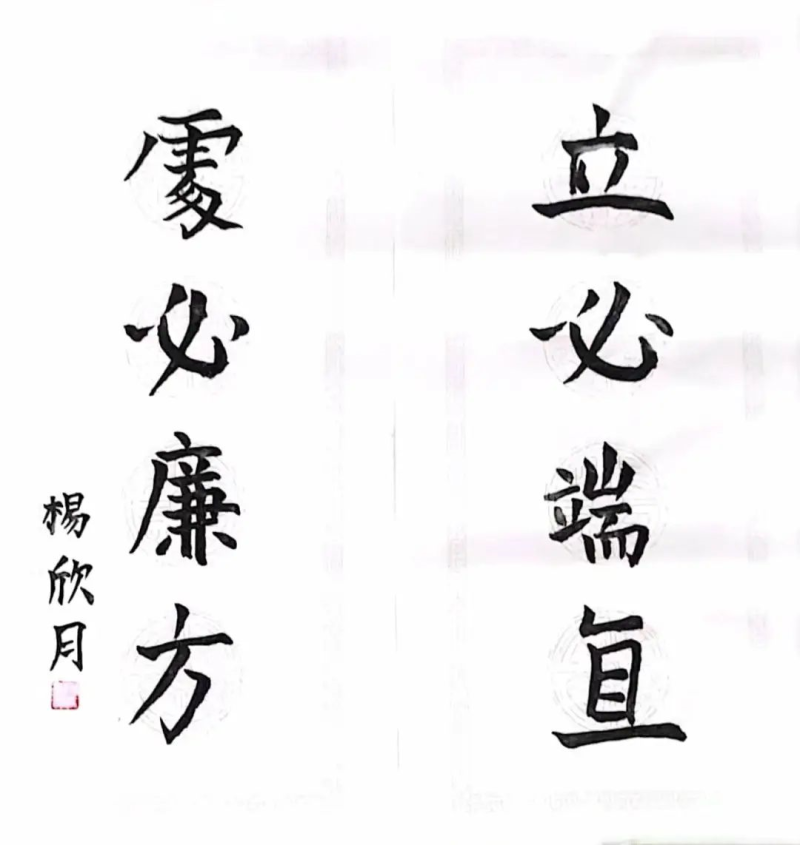 立必端直
處必廉方
楊欣月